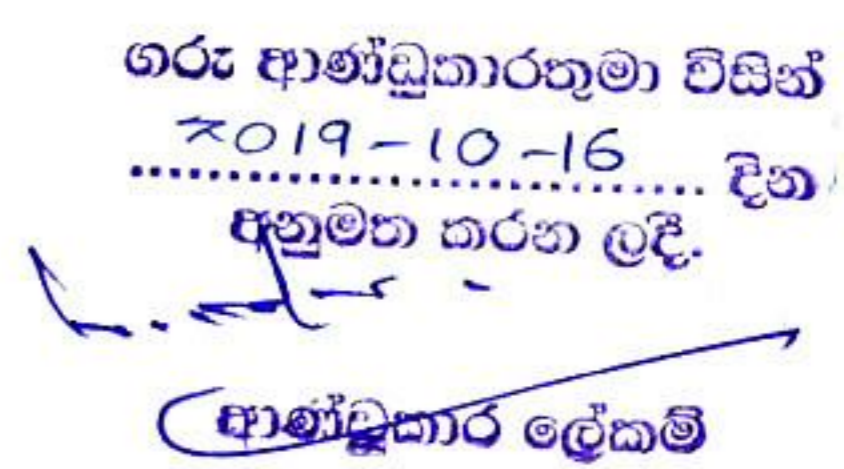 ගරු ආණ්ඩුකාරතුමා විසින්
2019-10-16 දින
අනුමත කරන ලදී.
ආණ්ඩුකාර ලේකම්